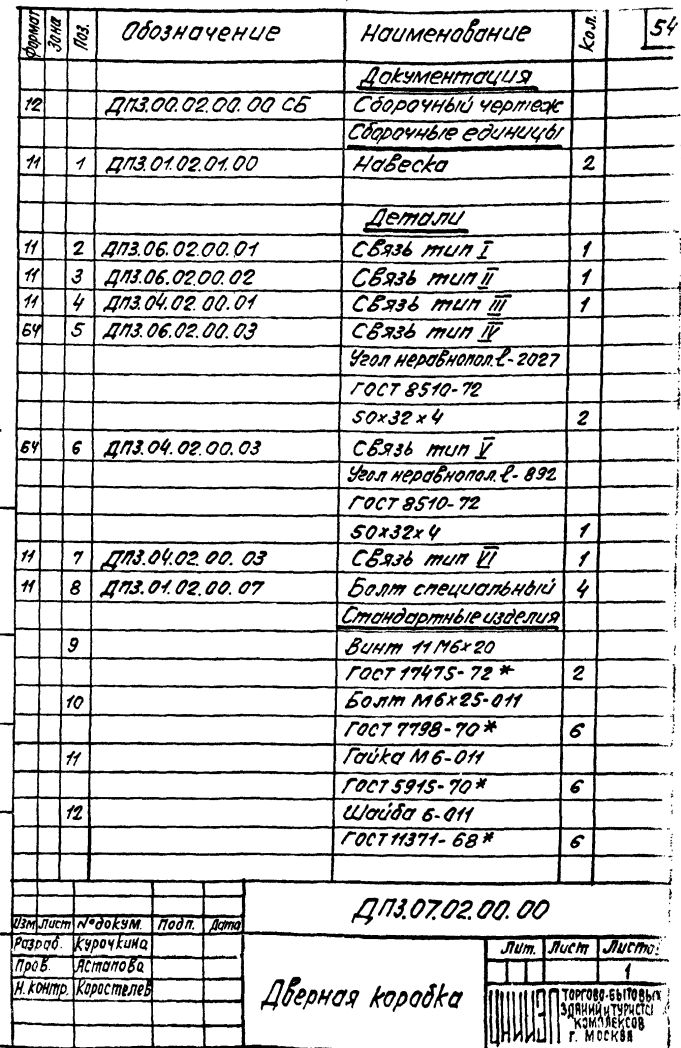 Формат Зона Поз. Обозначение Наименование Кол. 54
Документация
12 ДПЗ.00.02.00.00 СБ Сборочный чертеж
Сборочные единицы
11 1 ДПЗ.01.02.01.00 Навеска 2
Детали
11 2 ДПЗ.06.02.00.01 Связь тип I 1
11 3 ДПЗ.06.02.00.02 Связь тип II 1
11 4 ДПЗ.04.02.00.01 Связь тип III 1
БЧ 5 ДПЗ.06.02.00.03 Связь тип IV
Угол неравнопол. ℓ-2027
ГОСТ 8510-72
50×32×4 2
БЧ 6 ДПЗ.04.02.00.03 Связь тип V
Угол неравнопол. ℓ-892
ГОСТ 8510-72
50×32×4 1
11 7 ДПЗ.04.02.00.03 Связь тип VI 1
11 8 ДПЗ.01.02.00.07 Болт специальный 4
Стандартные изделия
9 Винт 11 М6×20
ГОСТ 17475-72* 2
10 Болт М6×25-011
ГОСТ 7798-70* 6
11 Гайка М6-011
ГОСТ 5915-70* 6
12 Шайба 6-011
ГОСТ 11371-68* 6
ДПЗ.07.02.00.00
Изм Лист № докум. Подп. Дата
Разраб. Курочкина
Пров. Астапова
Н.контр. Коростелев
Дверная коробка
Лит. Лист Листо
1
ЦНИИЭП
ТОРГОВО-БЫТОВЫХ
ЗДАНИЙ И ТУРИСТС
КОМПЛЕКСОВ
Г. МОСКВА